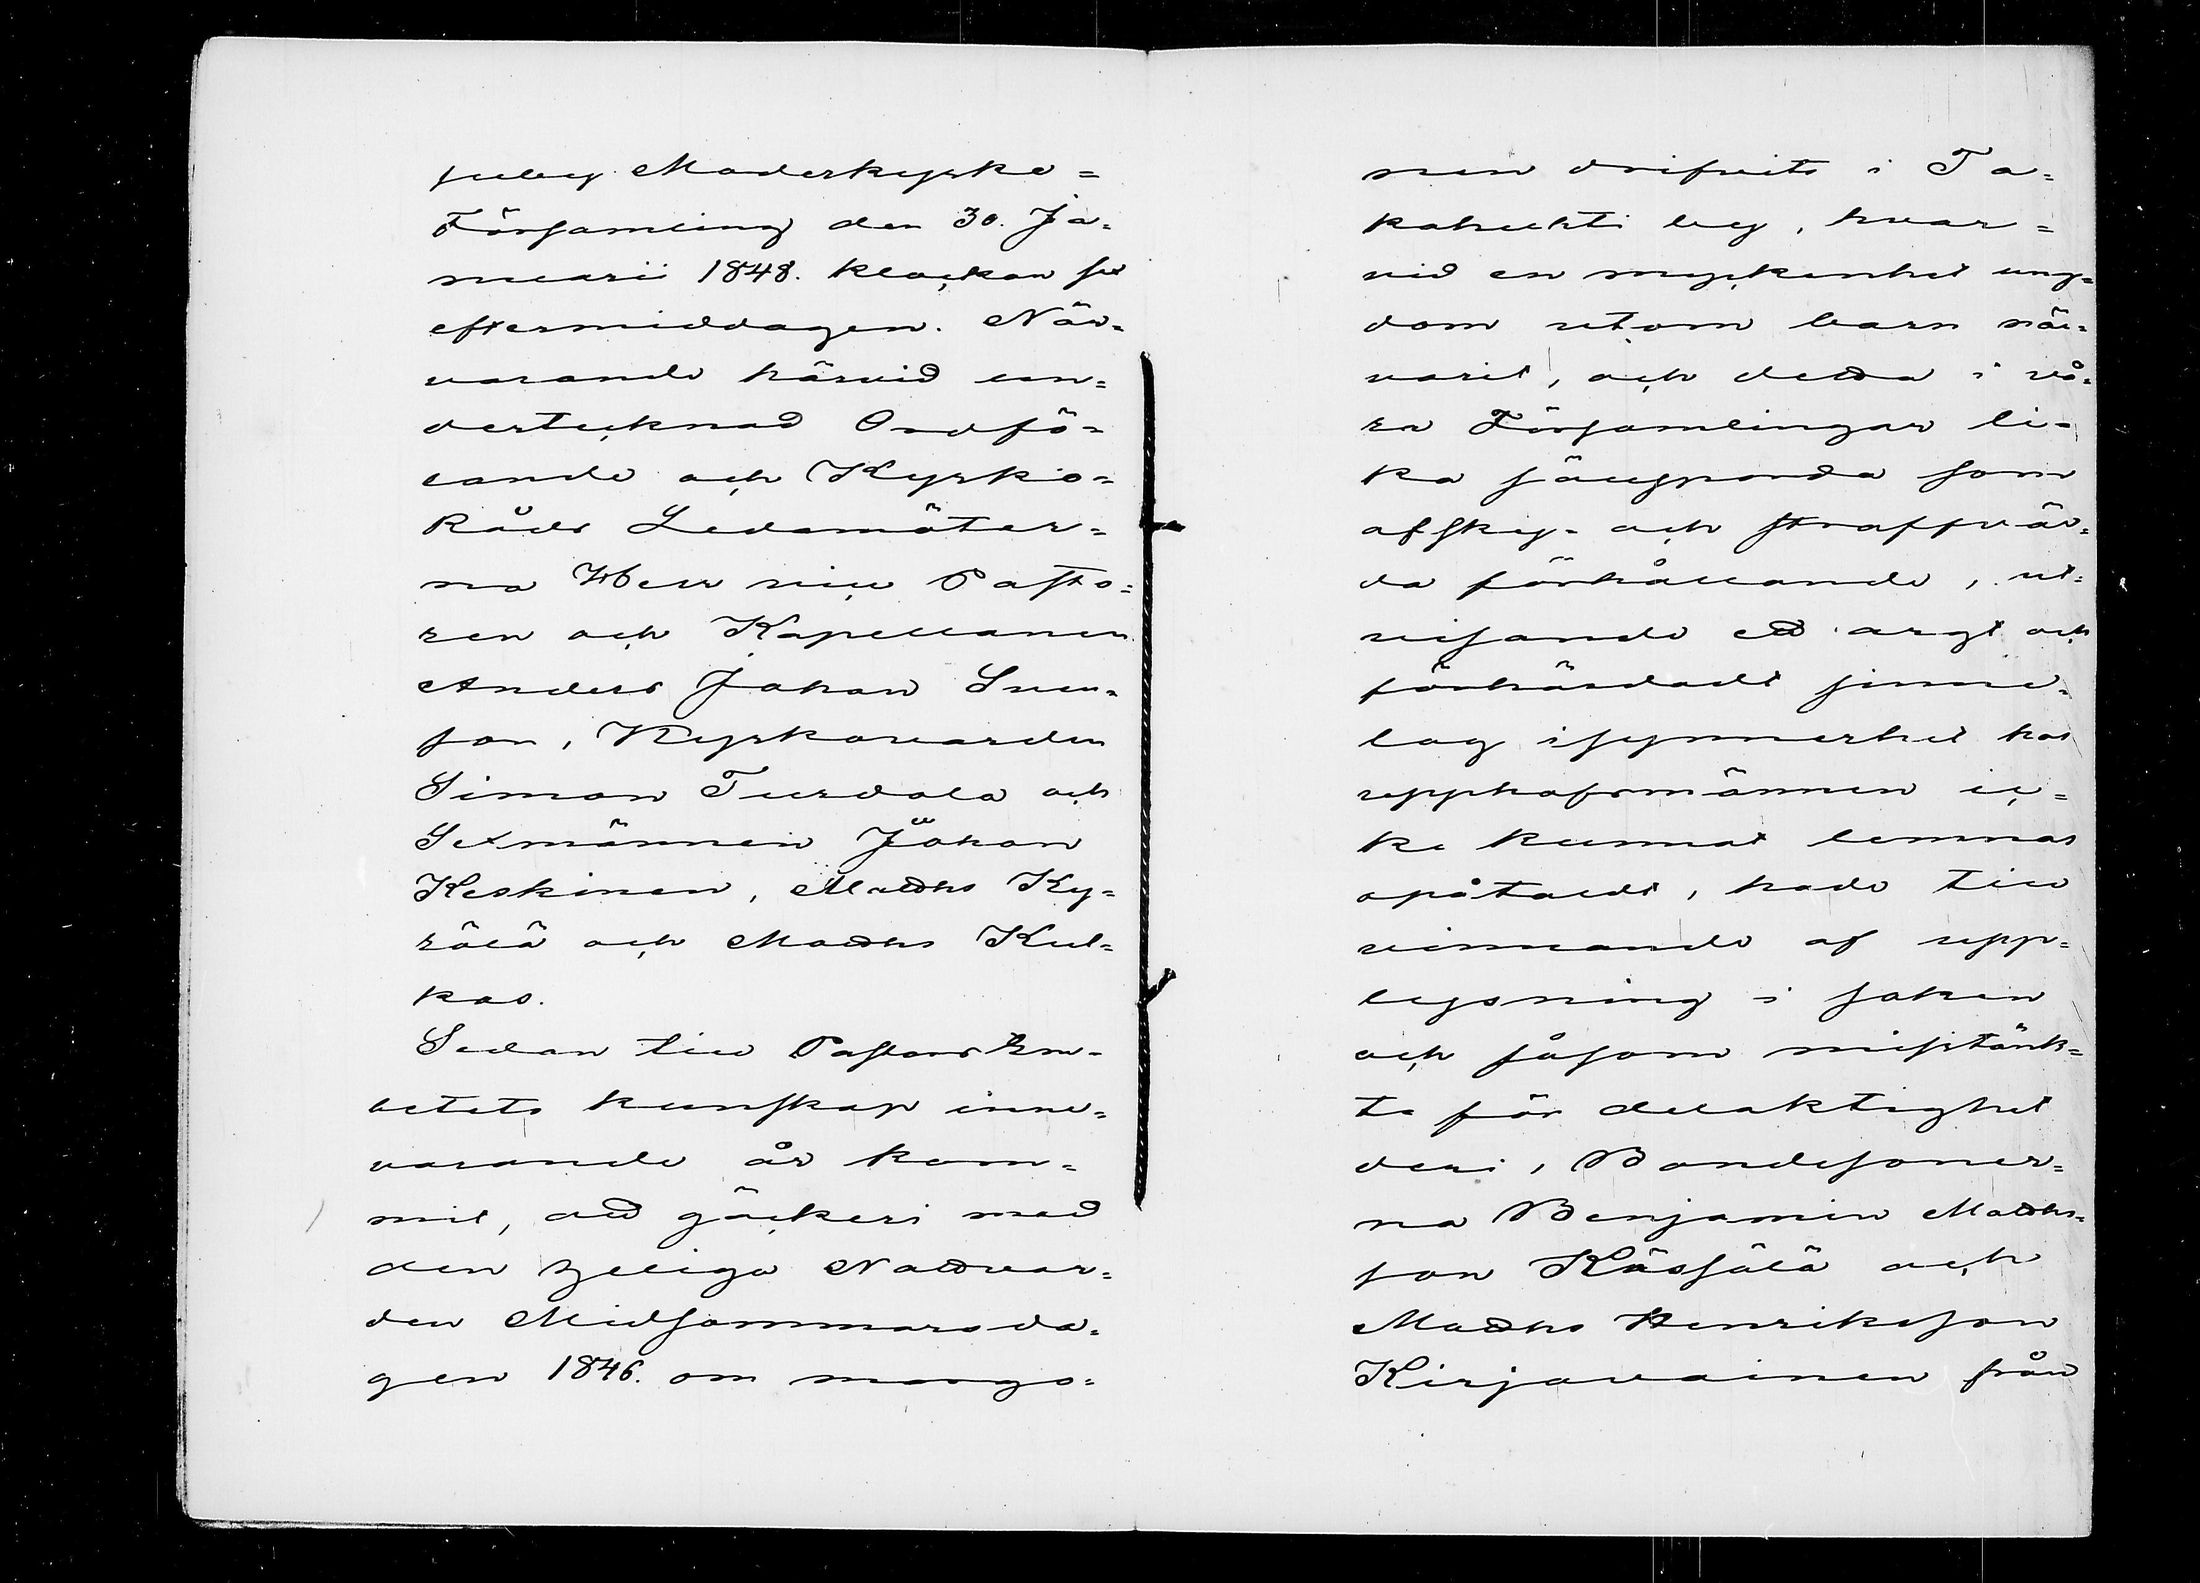 juby Moderkyrko=
Församling den 30. Ja=
nuarii 1848. klockan sex
eftermiddagen. När=
varande härvid un=
dertecknad Ordfö=
rande och Kyrko=
Råds Ledamöter=
na Herr vice Pasto=
ren och Kapellanen
Anders Johan Sven=
son, Kyrkovärden
Simon Turdala och
Sexmännen Johan
Keskinen, Matths Ky=
rölä och Matths Kul=
kas.
Sedan till Pastors Em=
betets kunskap inne=
varande år kom=
mit, att gäckeri med
den Heliga Nattvar=
den Midsommarsda=
gen 1846. om morgo=
nen drifvits i Ta=
kahuhti by, hvar=
vid en myckenhet ung=
dom utom barn när=
varit, och detta i vå=
ra Församlingar li=
ka sällspорda som
afsky= och straffvär=
da förhållande, ut=
visande ett argt och
förhärdadt sinne=
lag isynnerhet hos
upphofsmännen ic=
ke kunnat lemnas
opåtaldt, hade till
vinnande af upp=
lysning i saken
och såsom misstänk=
te för delaktighet
deri, Bondesöner=
na Benjamin Matths=
son Kässälä och
Matths Henriksson
Kirjavainen från